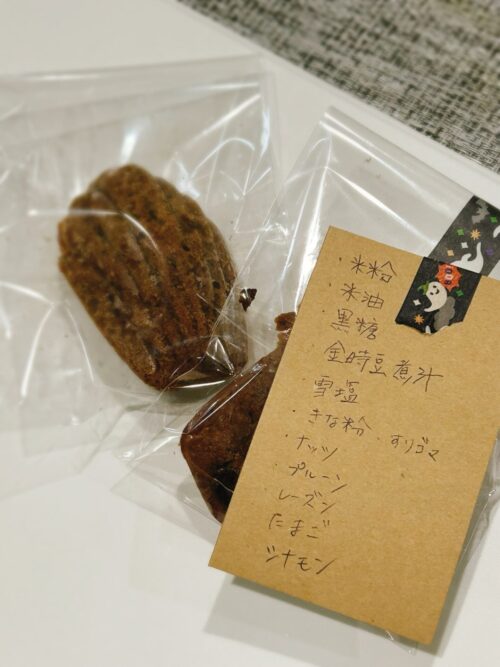 ・米粉
・米油
・黒糖
・金時豆煮汁
・雪塩
・きな粉 ・すりゴマ
・ナッツ
・プルーン
・レーズン
・たまご
・シナモン